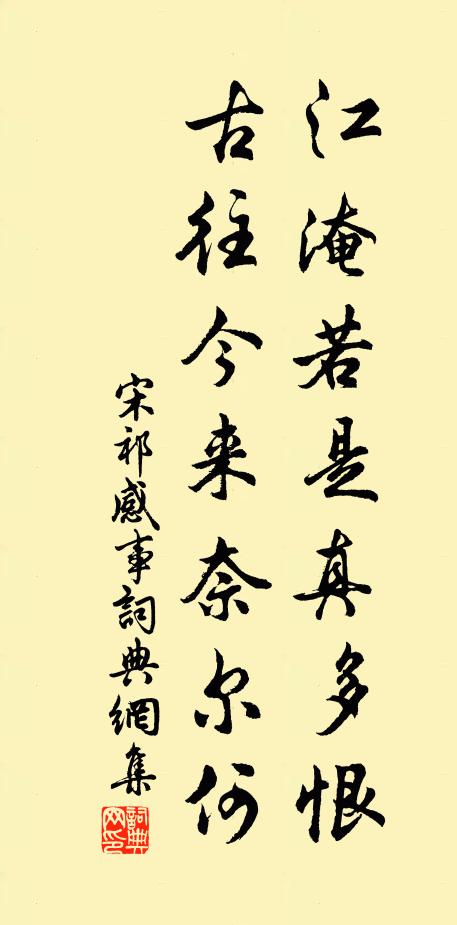 江淹若是真多恨
古往今来奈尔何
宋祁感事詞典網集
詞典网印